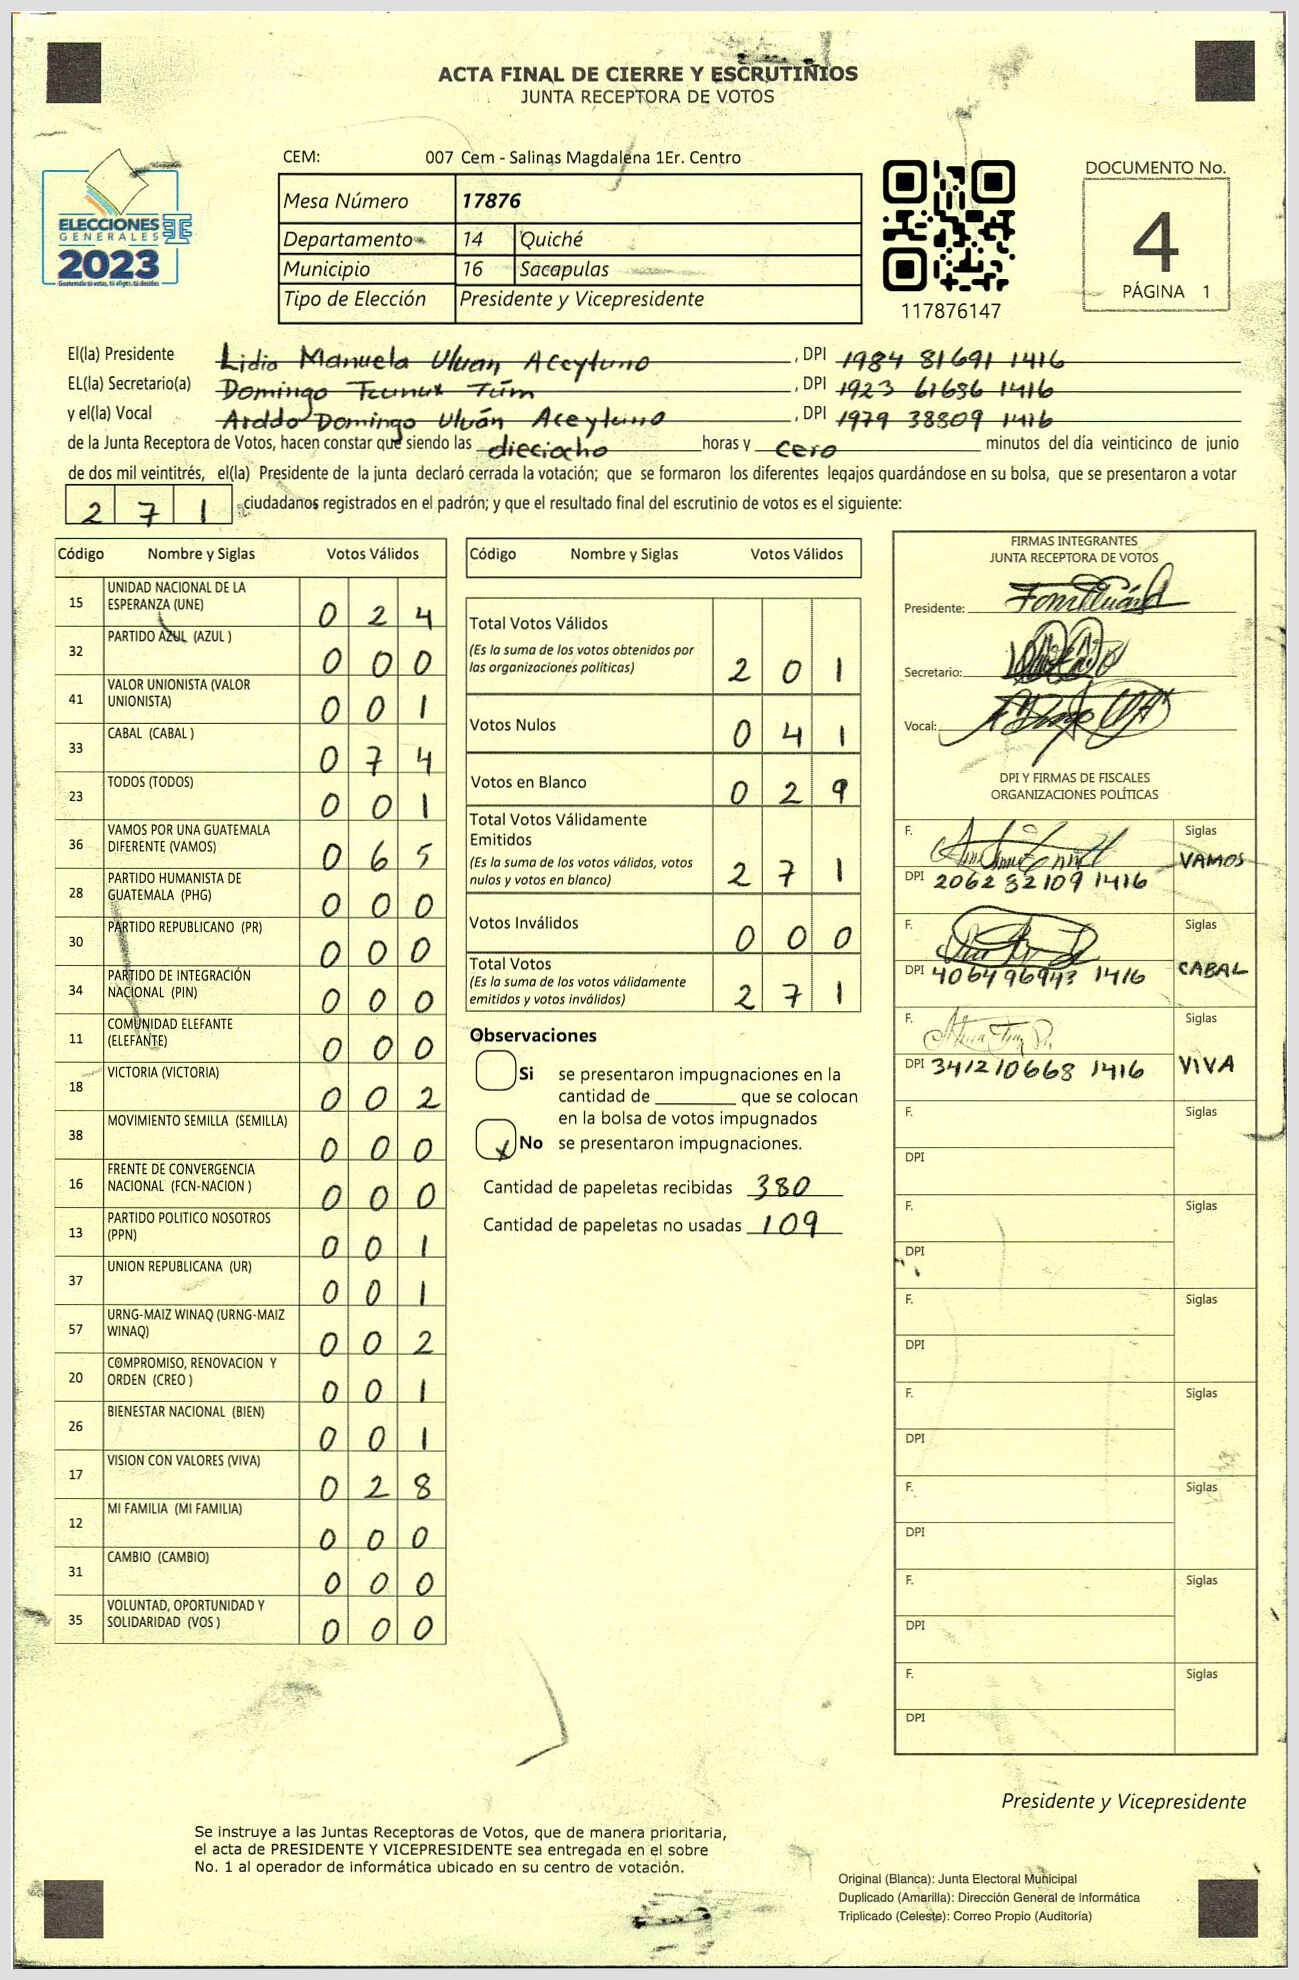 ACTA FINAL DE CIERRE Y ESCRUTINIOS
JUNTA RECEPTORA DE VOTOS
CEM: 007 Cem - Salinas Magdalena 1Er. Centro
Mesa Número 17876
Departamento 14 Quiché
Municipio 16 Sacapulas
Tipo de Elección Presidente y Vicepresidente
ELECCIONES
GENERALES
2023
Guatemala tú votas, tú eliges, tú decides
117876147
DOCUMENTO No.
4
PÁGINA 1
El(la) Presidente Lidia Manuela Uluan Aceytuno, DPI 1984 81691 1416
EL(la) Secretario(a) Domingo Túm, DPI 1923 61686 1416
y el(la) Vocal Domingo Uluán Aceytuno, DPI 1979 38809 1416
de la Junta Receptora de Votos, hacen constar que siendo las dieciocho horas y cero minutos del día veinticinco de junio
de dos mil veintitrés, el(la) Presidente de la junta declaró cerrada la votación; que se formaron los diferentes legajos guardándose en su bolsa, que se presentaron a votar
2 7 1 ciudadanos registrados en el padrón; y que el resultado final del escrutinio de votos es el siguiente:
Código Nombre y Siglas Votos Válidos
15 UNIDAD NACIONAL DE LA
ESPERANZA (UNE) 0 2 4
32 PARTIDO AZUL (AZUL ) 0 0 0
41 VALOR UNIONISTA (VALOR
UNIONISTA) 0 0 1
33 CABAL (CABAL ) 0 7 4
23 TODOS (TODOS) 0 0 1
36 VAMOS POR UNA GUATEMALA
DIFERENTE (VAMOS) 0 6 5
28 PARTIDO HUMANISTA DE
GUATEMALA (PHG) 0 0 0
30 PARTIDO REPUBLICANO (PR) 0 0 0
34 PARTIDO DE INTEGRACIÓN
NACIONAL (PIN) 0 0 0
11 COMUNIDAD ELEFANTE
(ELEFANTE) 0 0 0
18 VICTORIA (VICTORIA) 0 0 2
38 MOVIMIENTO SEMILLA (SEMILLA) 0 0 0
16 FRENTE DE CONVERGENCIA
NACIONAL (FCN-NACION ) 0 0 0
13 PARTIDO POLITICO NOSOTROS
(PPN) 0 0 1
37 UNION REPUBLICANA (UR) 0 0 1
57 URNG-MAIZ WINAQ (URNG-MAIZ
WINAQ) 0 0 2
20 COMPROMISO, RENOVACION Y
ORDEN (CREO ) 0 0 1
26 BIENESTAR NACIONAL (BIEN) 0 0 1
17 VISION CON VALORES (VIVA) 0 2 8
12 MI FAMILIA (MI FAMILIA) 0 0 0
31 CAMBIO (CAMBIO) 0 0 0
35 VOLUNTAD, OPORTUNIDAD Y
SOLIDARIDAD (VOS ) 0 0 0
Código Nombre y Siglas Votos Válidos
Total Votos Válidos
(Es la suma de los votos obtenidos por
las organizaciones políticas) 2 0 1
Votos Nulos 0 4 1
Votos en Blanco 0 2 9
Total Votos Válidamente
Emitidos
(Es la suma de los votos válidos, votos
nulos y votos en blanco) 2 7 1
Votos Inválidos 0 0 0
Total Votos
(Es la suma de los votos válidamente
emitidos y votos inválidos) 2 7 1
Observaciones
Si se presentaron impugnaciones en la
cantidad de ________ que se colocan
en la bolsa de votos impugnados
x No se presentaron impugnaciones.
Cantidad de papeletas recibidas 380
Cantidad de papeletas no usadas 109
FIRMAS INTEGRANTES
JUNTA RECEPTORA DE VOTOS
Presidente:
Secretario:
Vocal:
DPI Y FIRMAS DE FISCALES
ORGANIZACIONES POLÍTICAS
F. Siglas
VAMOS
DPI 2062 32109 1416
F. Siglas
CABAL
DPI 4064 96943 1416
F. Siglas
VIVA
DPI 3412 10668 1416
F. Siglas
DPI
F. Siglas
DPI
F. Siglas
DPI
F. Siglas
DPI
F. Siglas
DPI
F. Siglas
DPI
F. Siglas
DPI
Presidente y Vicepresidente
Se instruye a las Juntas Receptoras de Votos, que de manera prioritaria,
el acta de PRESIDENTE Y VICEPRESIDENTE sea entregada en el sobre
No. 1 al operador de informática ubicado en su centro de votación.
Original (Blanca): Junta Electoral Municipal
Duplicado (Amarilla): Dirección General de Informática
Triplicado (Celeste): Correo Propio (Auditoría)